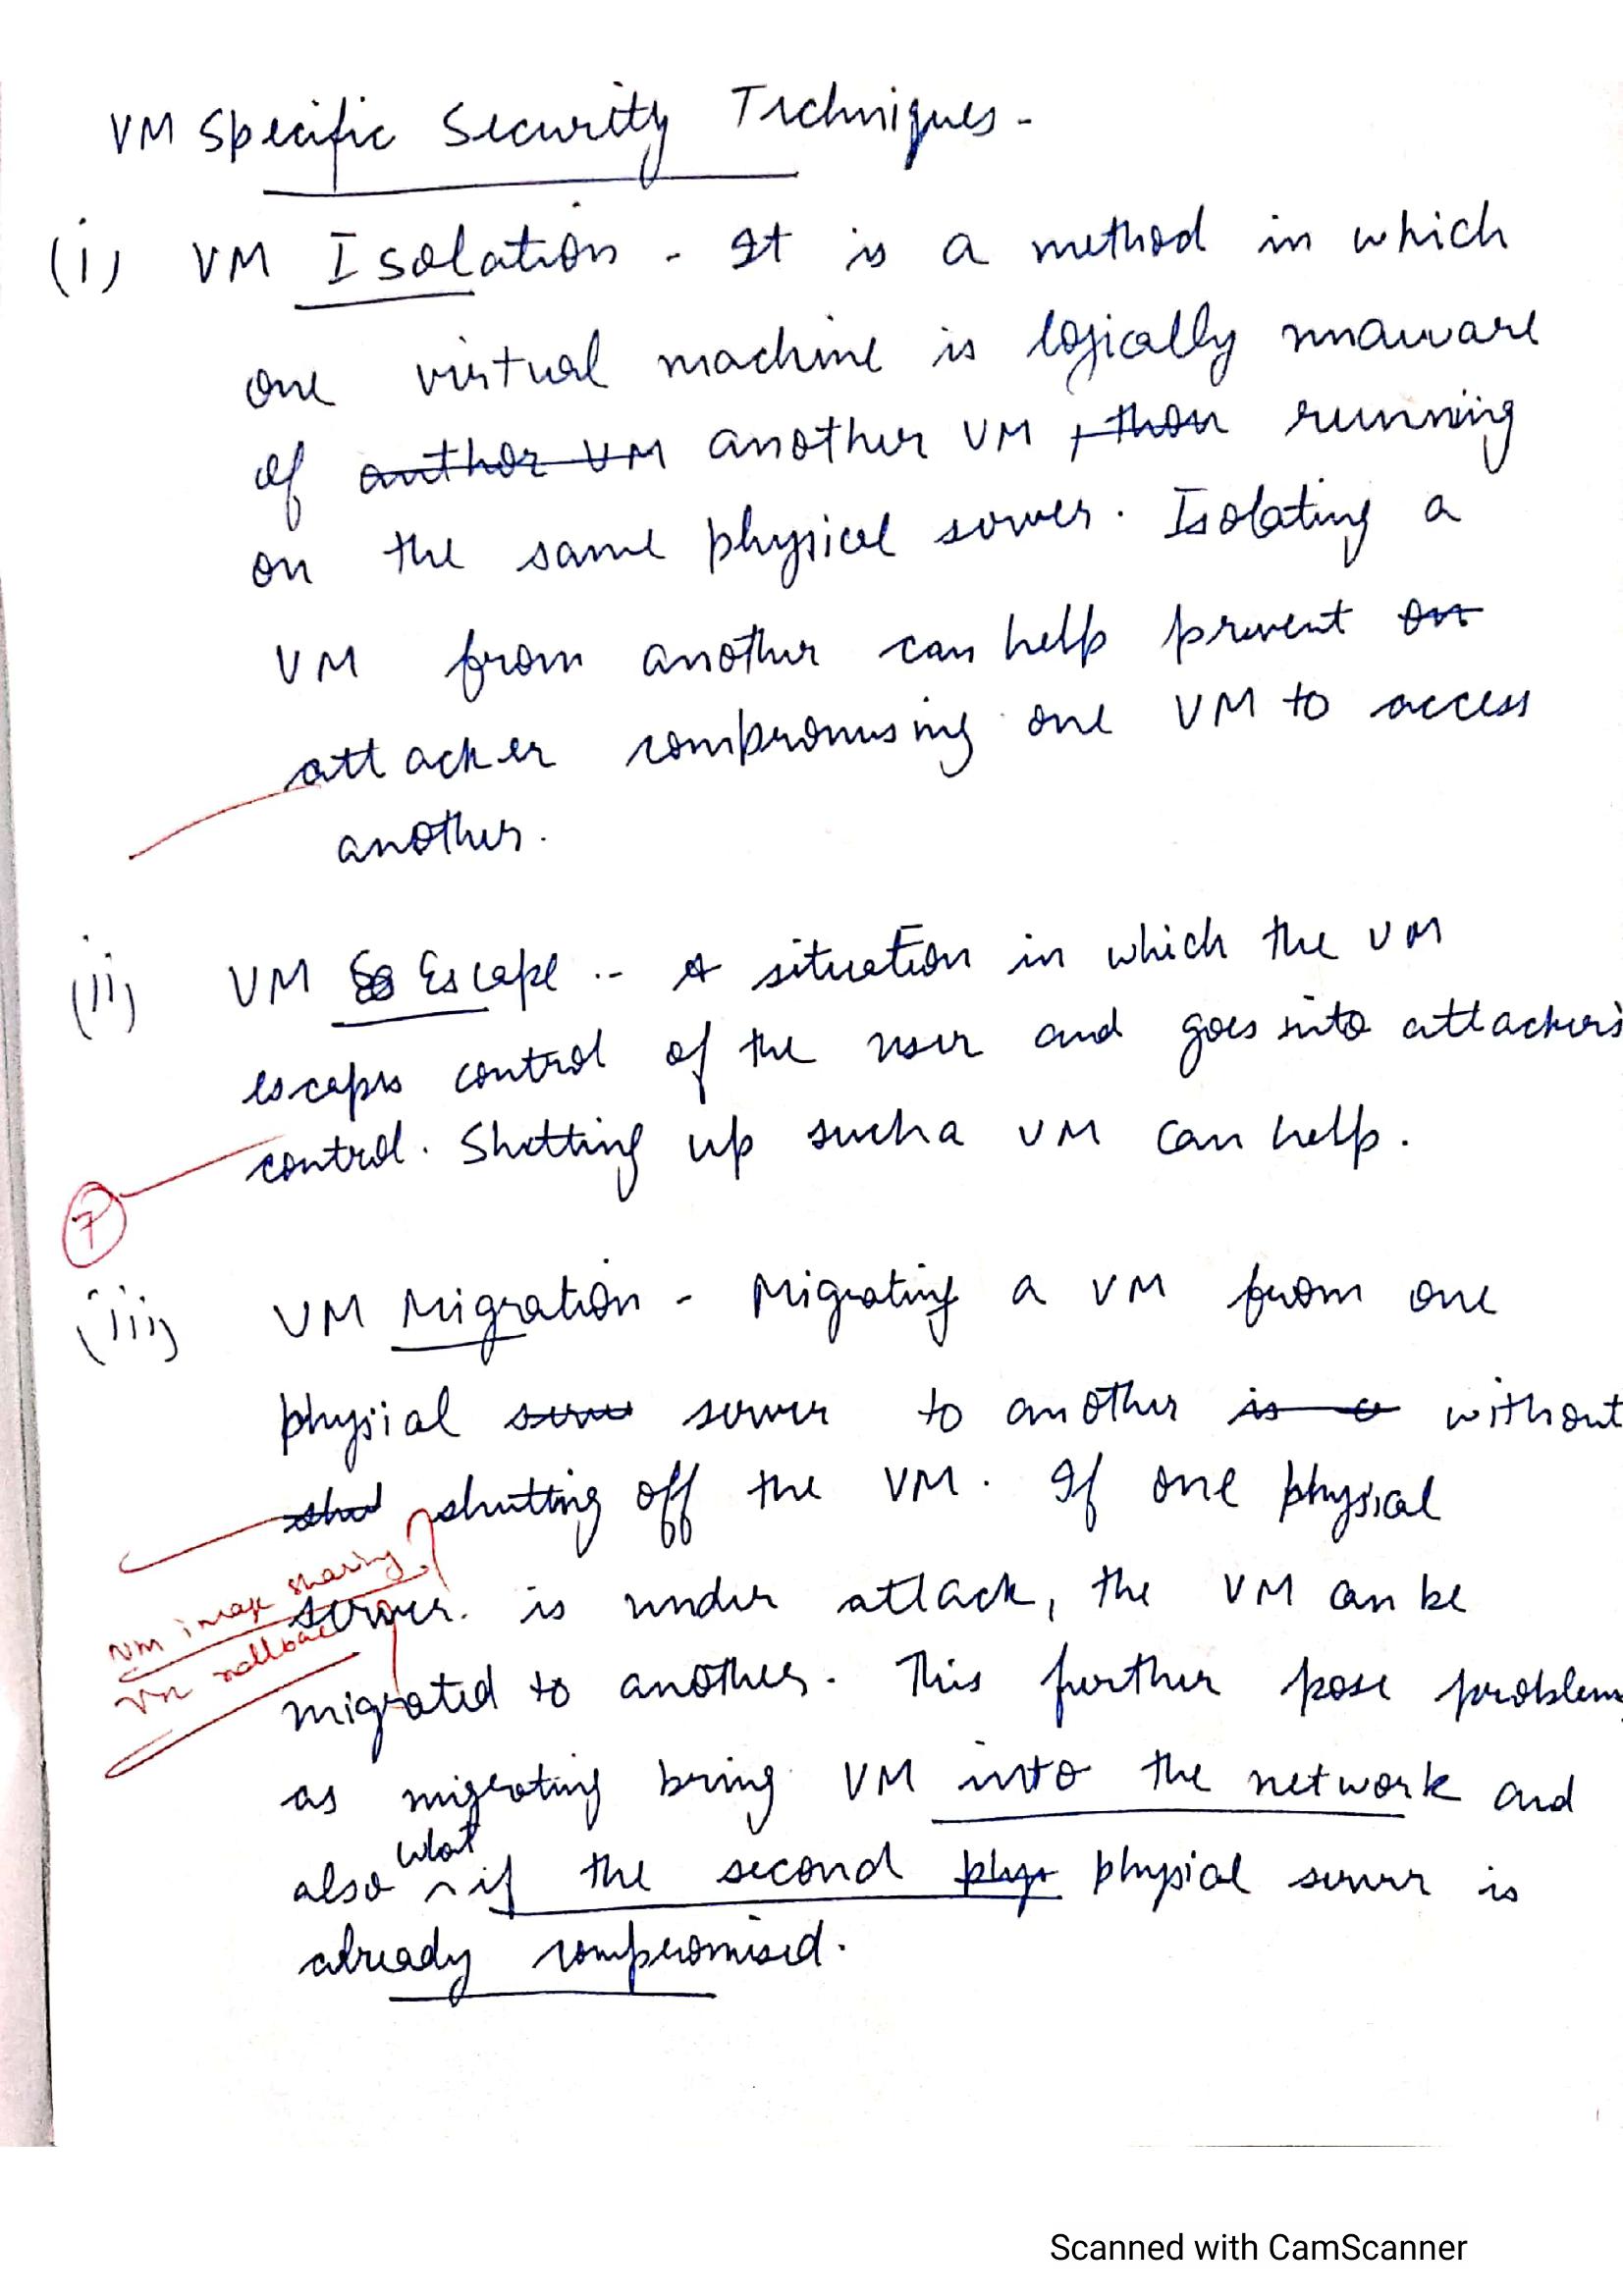 VM Specific Security Techniques -
(i) VM Isolation - It is a method in which
one virtual machine is logically unaware
of author VM another VM , than running
on the same physical server. Isolating a
VM from another can help prevent on
attacker compromising one VM to access
another.
(ii) VM Escape :- A situation in which the VM
escapes control of the user and goes into attackers
control. Shutting up such a VM can help.
7
(iii) VM Migration - Migrating a VM from one
physial server to another is a without
shut shutting off the VM. If one physical
vm image sharing
server. is under attack, the VM can be
vm rollback
migrated to another. This further pose problem
as migrating bring VM into the network and
what
also ^ if the second phys physial server is
already compromised.
Scanned with CamScanner